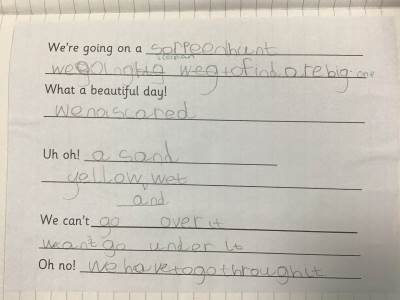 We're going on a scrpeenhunt
wegoinghtg wegtofindarebig one
What a beautiful day!
wenoscared
Uh oh! a sand
yellow wet
and
We can't go over it
wean't go under it
Oh no! We havetogothroughit